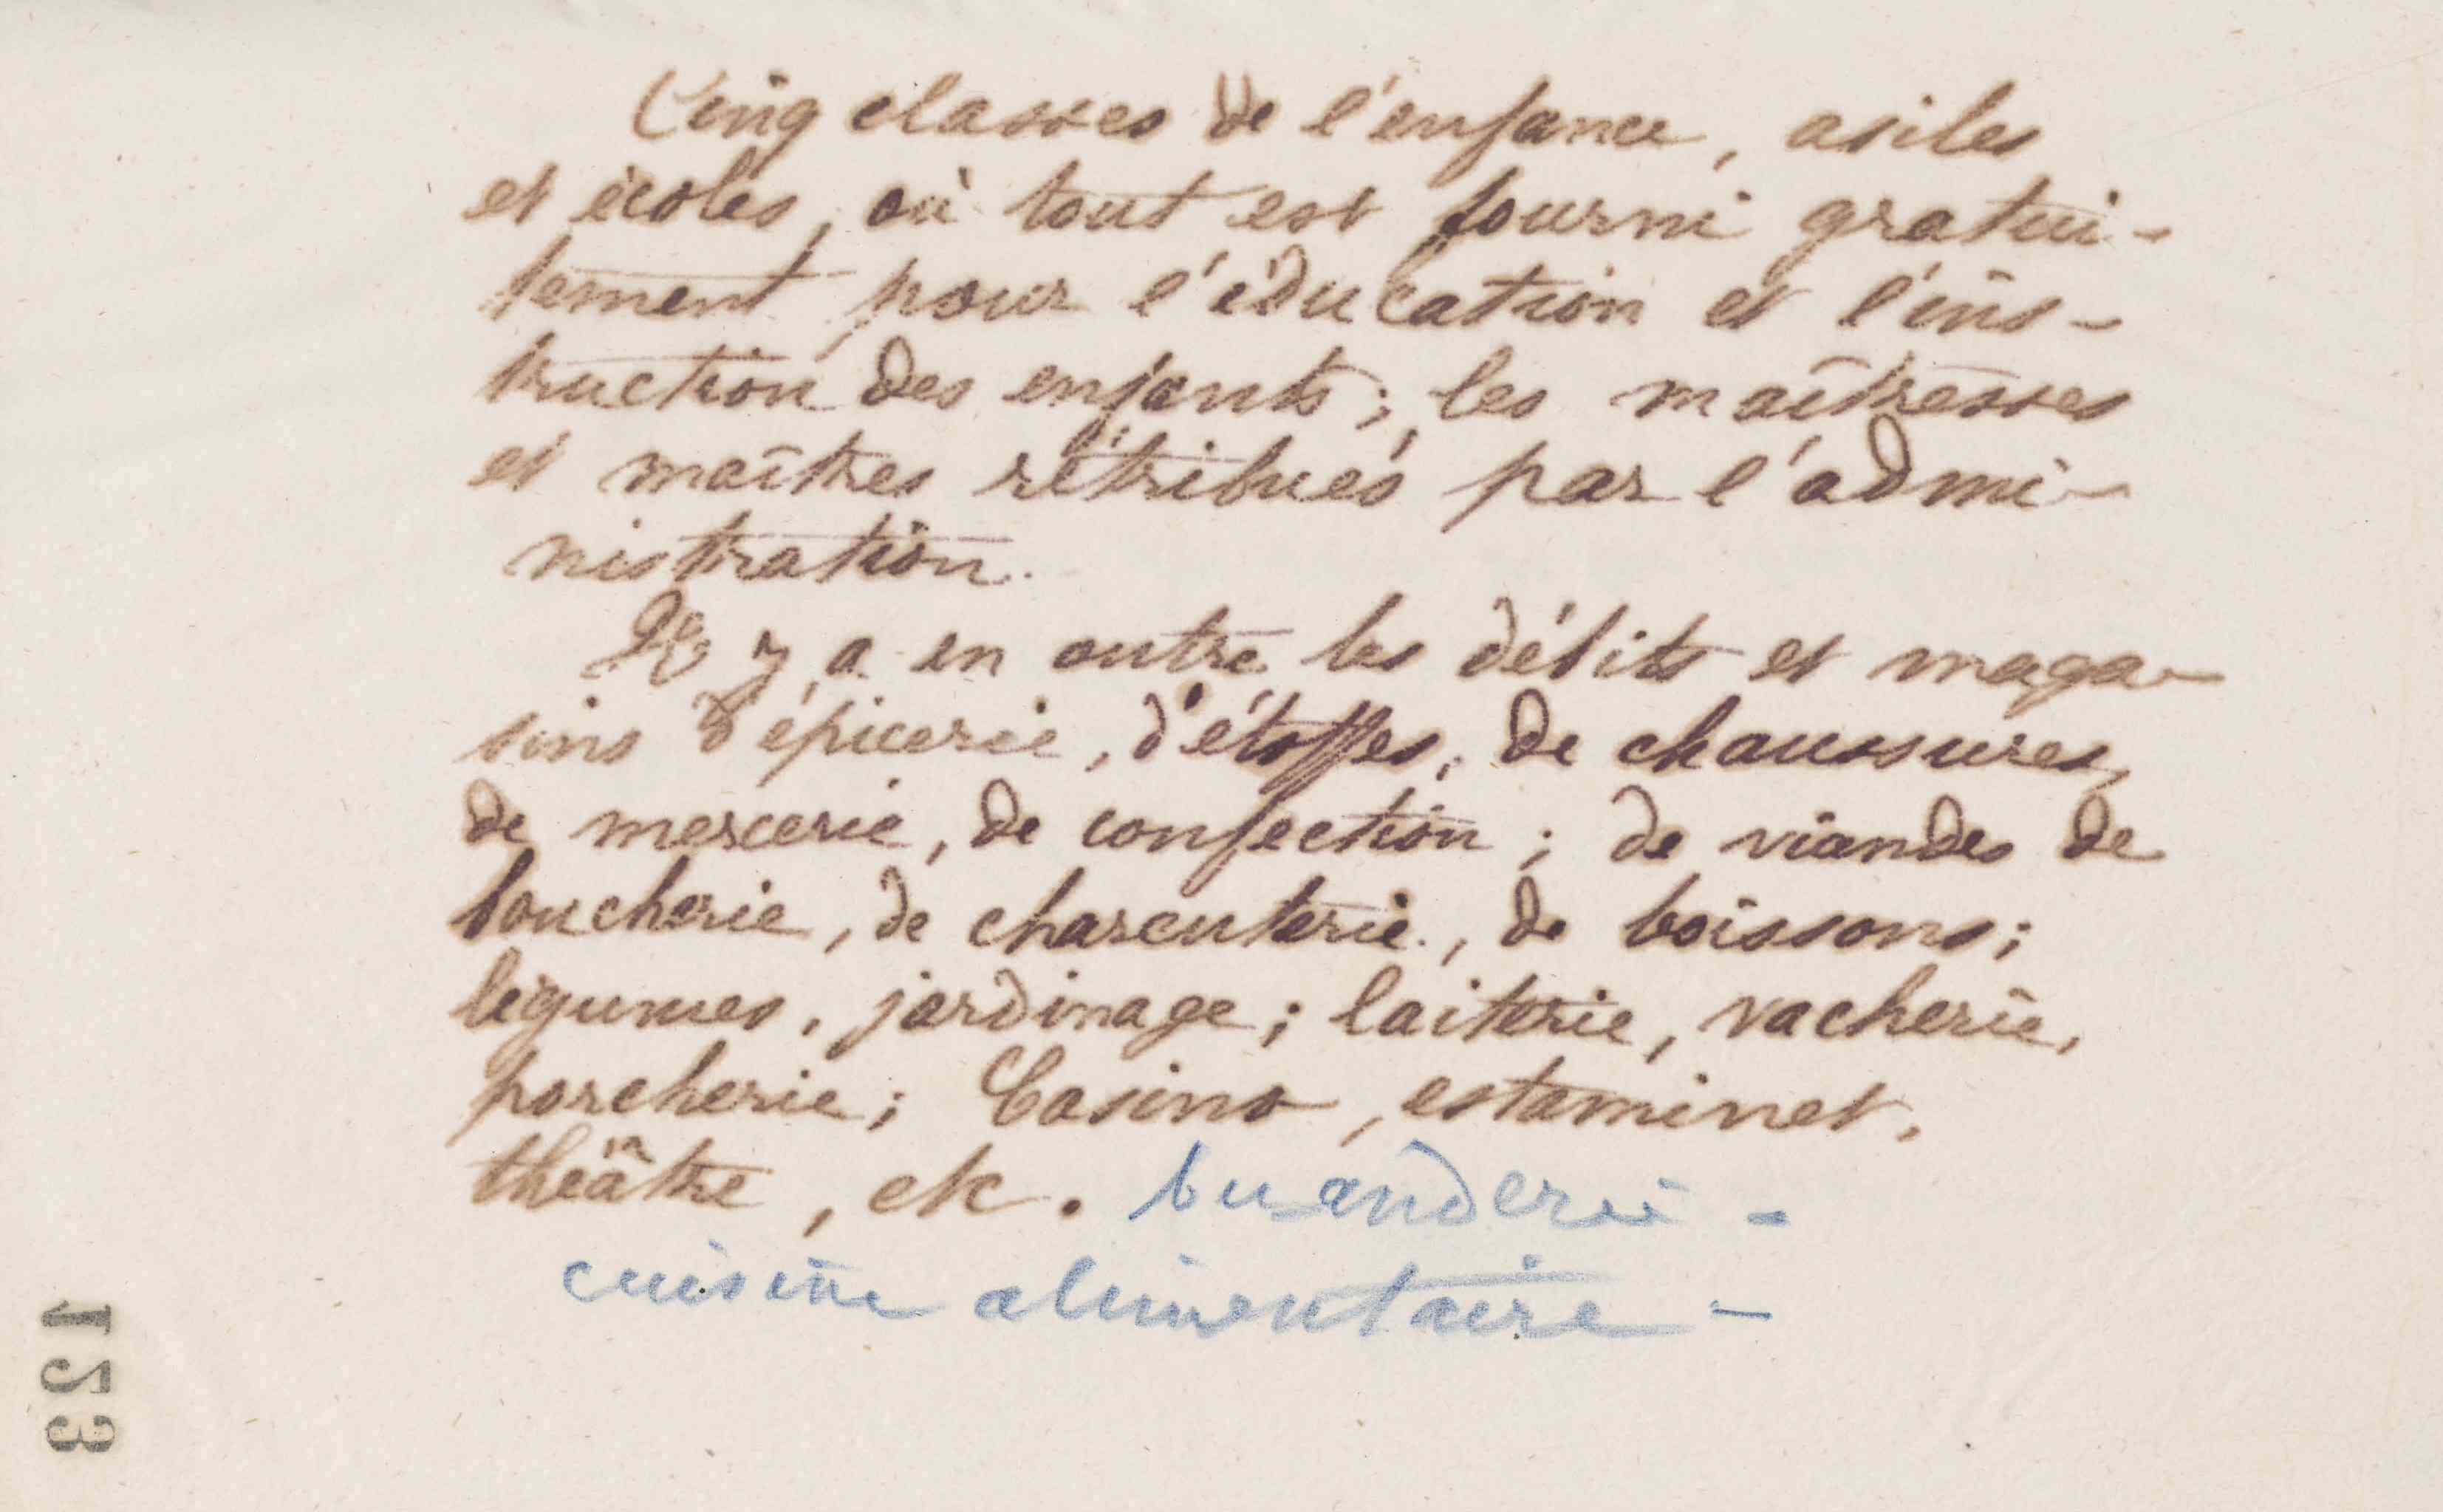 Cinq classes de l'enfance, asiles
et écoles, où tout est fourni gratui-
tement pour l'éducation et l'ins-
truction des enfants; les maîtresses
et maîtres rétribués par l'admi-
nistration.
Il y a en outre les débits et maga-
sins d'épicerie, d'étoffes, de chaussures,
de mercerie, de confection; de viandes de
boucherie, de charcuterie, de boissons;
légumes, jardinage; laiterie, vacherie,
porcherie; Casino, estaminet,
théâtre, etc. buanderie -
cuisine alimentaire -
123